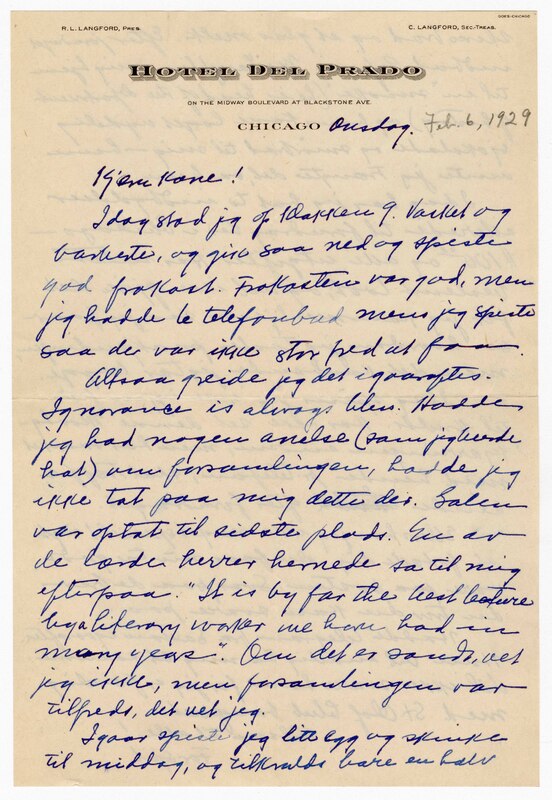 GOES-CHICAGO
R.L. LANGFORD, PRES.
C. LANGFORD, SEC.-TREAS.
HOTEL DEL PRADO
ON THE MIDWAY BOULEVARD AT BLACKSTONE AVE.
CHICAGO Onsdag. Feb. 6, 1929
Kjære Kone!
Idag stod jeg op Klokken 9. Vasket og
barberte, og gik saa ned og spiste
god frokost. Frokosten var god, men
jeg hadde to telefonbud mens jeg spiste
saa der var ikke stor fred at faa.
Altsaa greide jeg det igaaraftes.
Ignorance is always bliss. Hadde
jeg had nogen anelse (som jeg burde
hat) om forsamlingen, hadde jeg
ikke tat paa mig dette der. Salen
var optat til sidste plads. En av
de lærde herrer hernede sa til mig
efterpaa. "It is by far the best lecture
by a literary worker we have had in
many years". Om det er sandt, vet
jeg ikke, men forsamlingen var
tilfreds, det vet jeg.
Igaar spiste jeg litt egg og skinke
til middag, og tilkvelds bare en halv